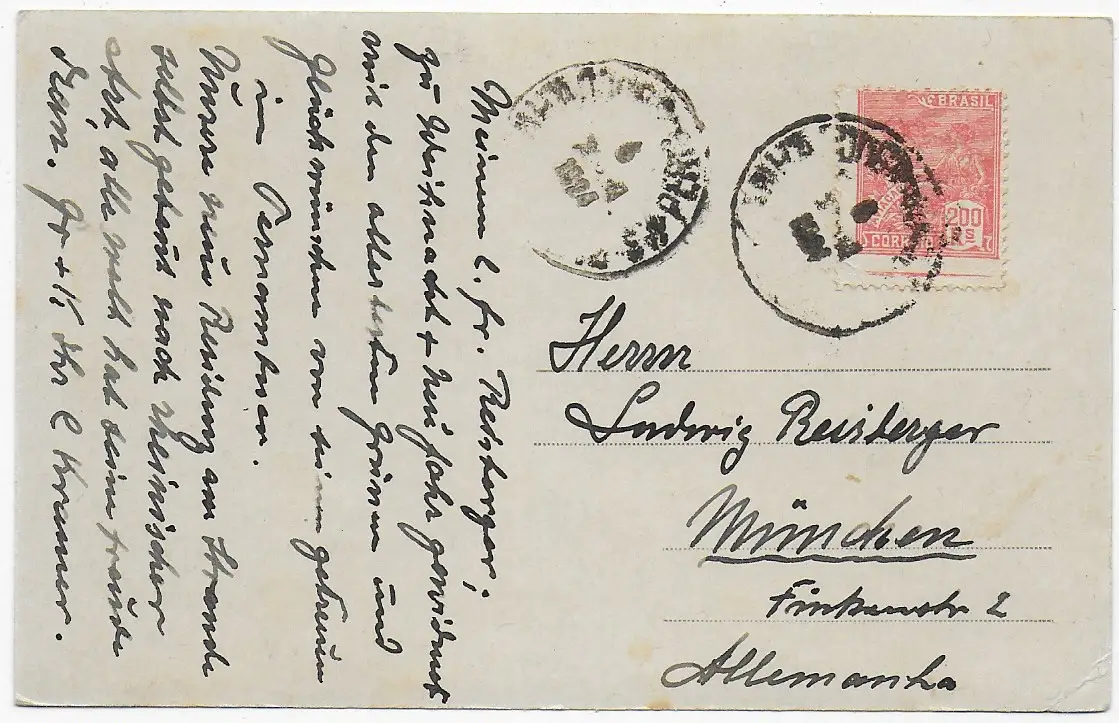 Meinem l. Fr. Reisberger,
zu Weihnacht + Neujahr gewidmet
mit den allerbesten Grüssen und
Glückwünschen von seinem getreuen
in Pernambuco.
Unsere neue Residenz am Strande
selbst gebaut nach rheinischer
Art, alle Welt hat seine Freude
dran. Gr + K Ihr C Kremer.
BRASIL
200
RS
CORREIO
Herrn
Ludwig Reisberger
München
Finkenstr 2
Allemanha